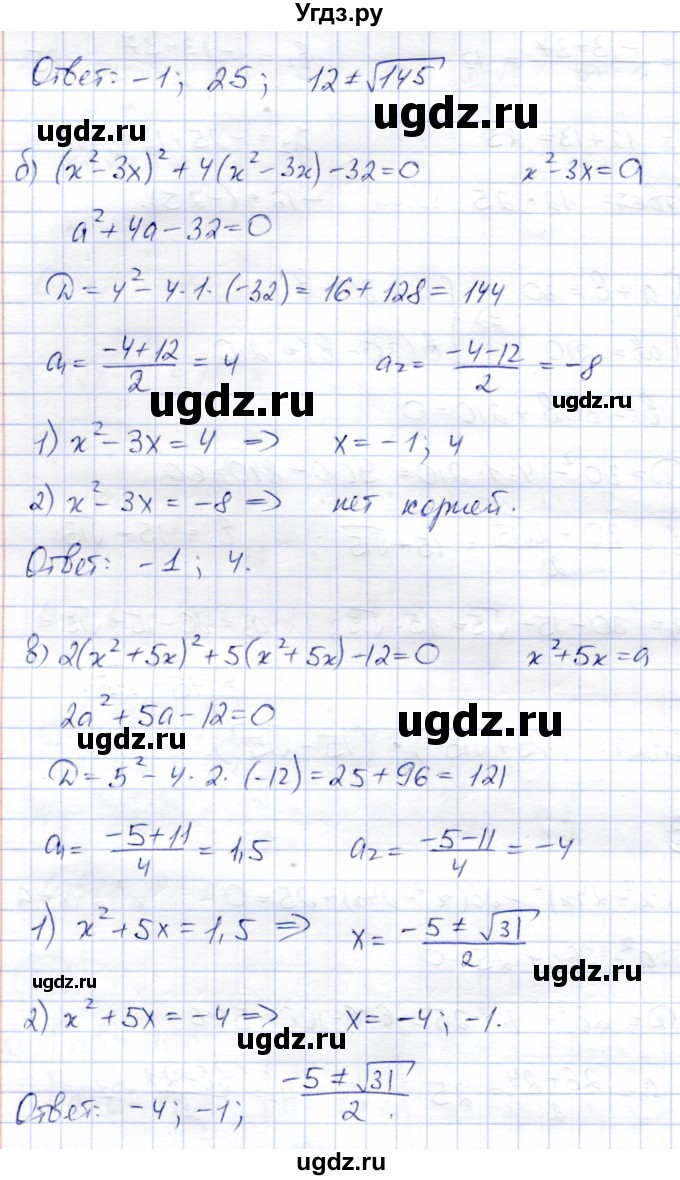 Угдз.ру
Ответ: -1; 25; 12 ± √145
ugdz.ru
ugdz.ru
б) (x² - 3x)² + 4(x² - 3x) - 32 = 0 x² - 3x = a
a² + 4a - 32 = 0
D = 4² - 4·1·(-32) = 16 + 128 = 144
a₁ = (-4+12)/2 = 4 a₂ = (-4-12)/2 = -8
ugdz.ru
ugdz.ru
1) x² - 3x = 4 => x = -1; 4
2) x² - 3x = -8 => нет корней.
ugdz.ru
Ответ: -1; 4.
в) 2(x² + 5x)² + 5(x² + 5x) - 12 = 0 x² + 5x = a
2a² + 5a - 12 = 0
ugdz.ru
ugdz.ru
D = 5² - 4·2·(-12) = 25 + 96 = 121
a₁ = (-5+11)/4 = 1,5 a₂ = (-5-11)/4 = -4
ugdz.ru
1) x² + 5x = 1,5 => x = (-5 ± √31)/2
ugdz.ru
ugdz.ru
2) x² + 5x = -4 => x = -4; -1.
ugdz.ru
Ответ: -4; -1; (-5 ± √31)/2.
ugdz.ru
ugdz.ru